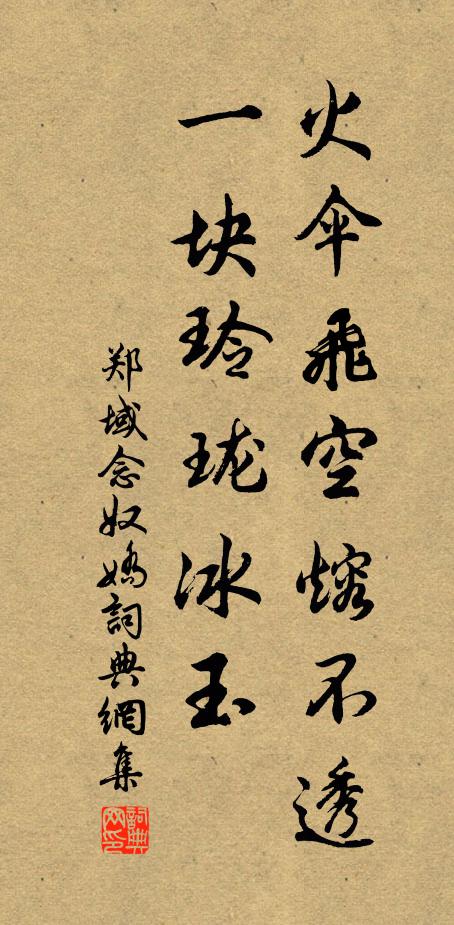 火伞飛空熔不透
一块玲珑冰玉
郑域念奴嬌詞典網集
詞典网印